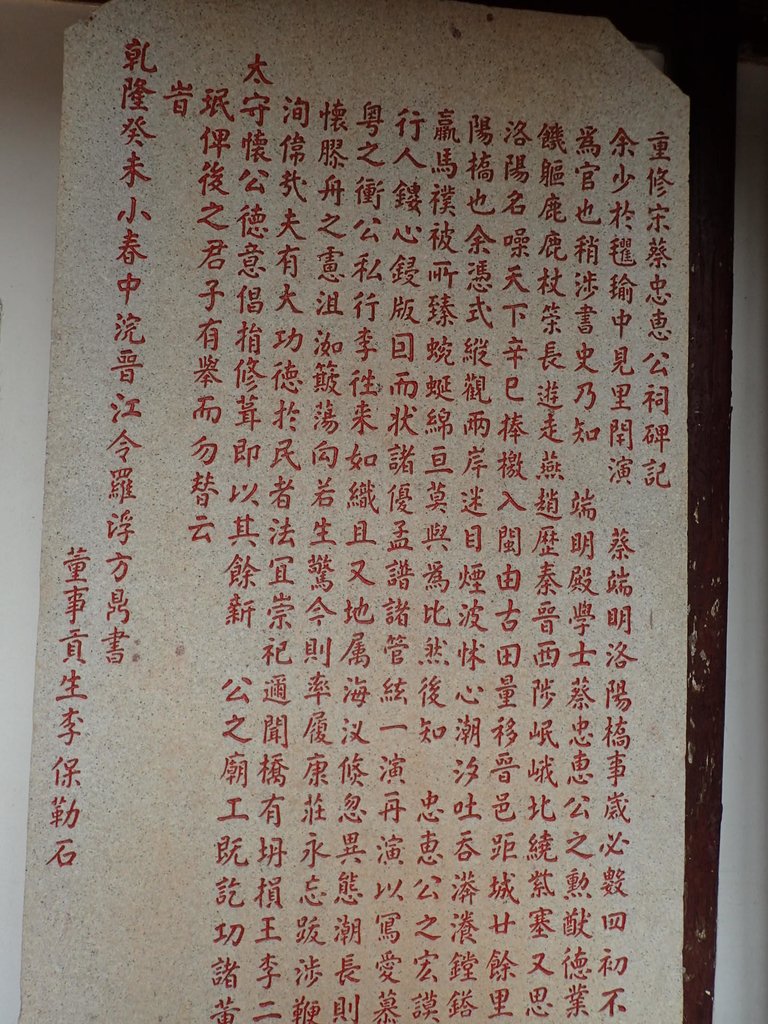 重修宋蔡忠惠公祠碑記
余少於氍毹中見里閈演 蔡端明洛陽橋事歲必數四初不
為官也稍涉書史乃知 端明殿學士蔡忠惠公之勳猷德業
饑軀鹿鹿杖策長遊走燕趙歷秦晉西陟岷峨北繞紫塞又思
洛陽名噪天下辛巳捧檄入閩由古田量移晉邑距城廿餘里
陽橋也余憑式縱觀兩岸迷目煙波怵心潮汐吐吞漭瀁鏜鎝
羸馬襆被所臻蜿蜒綿亘莫與為比然後知 忠惠公之宏謨
行人鏤心鋟版因而狀諸優孟譜諸管絃一演再演以寫愛慕
粵之衝公私行李往來如織且又地属海汊倏忽異態潮長則
懷膠舟之慮沮洳簸蕩向若生驚今則率履康莊永忘跋涉鞭
洵偉哉夫有大功德於民者法宜崇祀邇聞橋有坍損王李二
太守懷公德意倡捐修葺即以其餘新 公之廟工既訖功諸董
珉俾後之君子有舉而勿替云
旹
乾隆癸未小春中浣晉江令羅浮方鼎書
董事貢生李保勒石